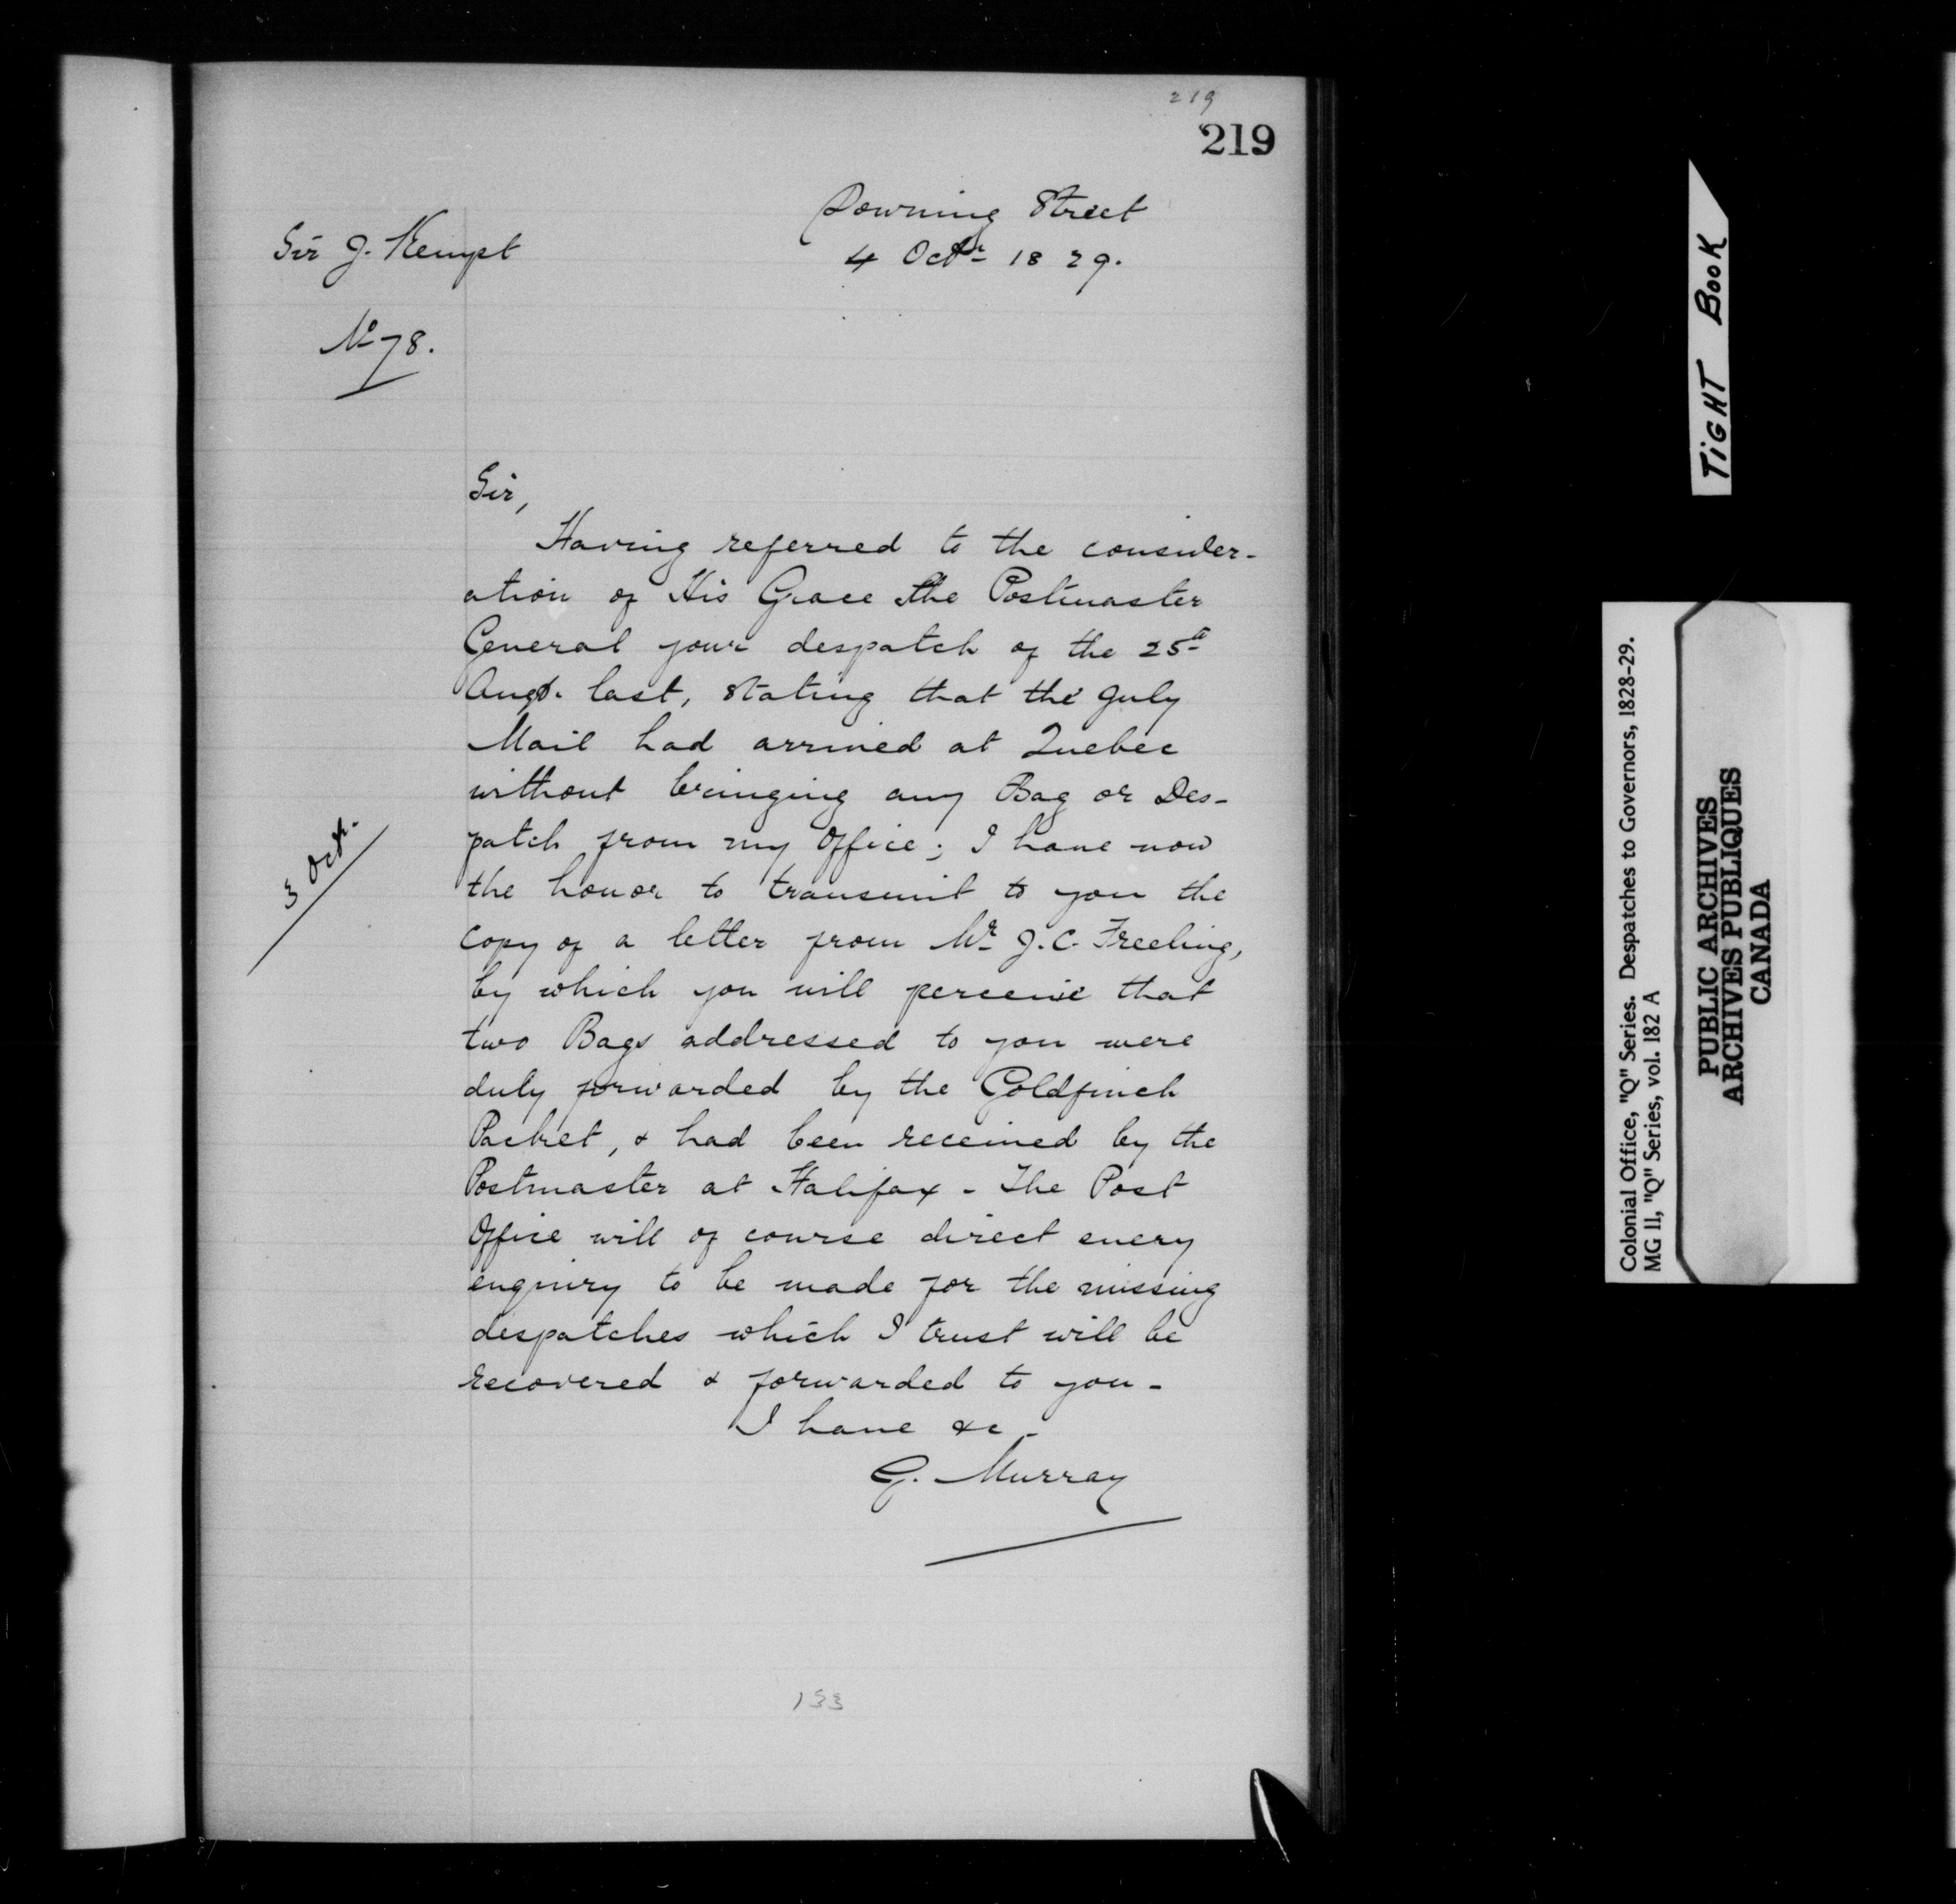 219
219
Downing Street
4 Octr 1829.
Sir J. Kempt
No 78.
Sir,
Having referred to the consider-
ation of His Grace the Postmaster
General your despatch of the 25th
Augt. last, stating that the July
Mail had arrived at Quebec
without bringing any Bag or Des-
patch from my Office; I have now
the honor to transmit to you the
3 Oct.
Copy of a letter from Mr J. C. Freeling,
by which you will perceive that
two Bags addressed to you were
duly forwarded by the Goldfinch
Packet, & had been received by the
Postmaster at Halifax - The Post
Office will of course direct every
enquiry to be made for the missing
despatches which I trust will be
recovered & forwarded to you -
I have &c -
G. Murray
133
TIGHT BOOK
Colonial Office, "Q" Series. Despatches to Governors, 1828-29.
MG 11, "Q" Series, vol. 182 A
PUBLIC ARCHIVES
ARCHIVES PUBLIQUES
CANADA